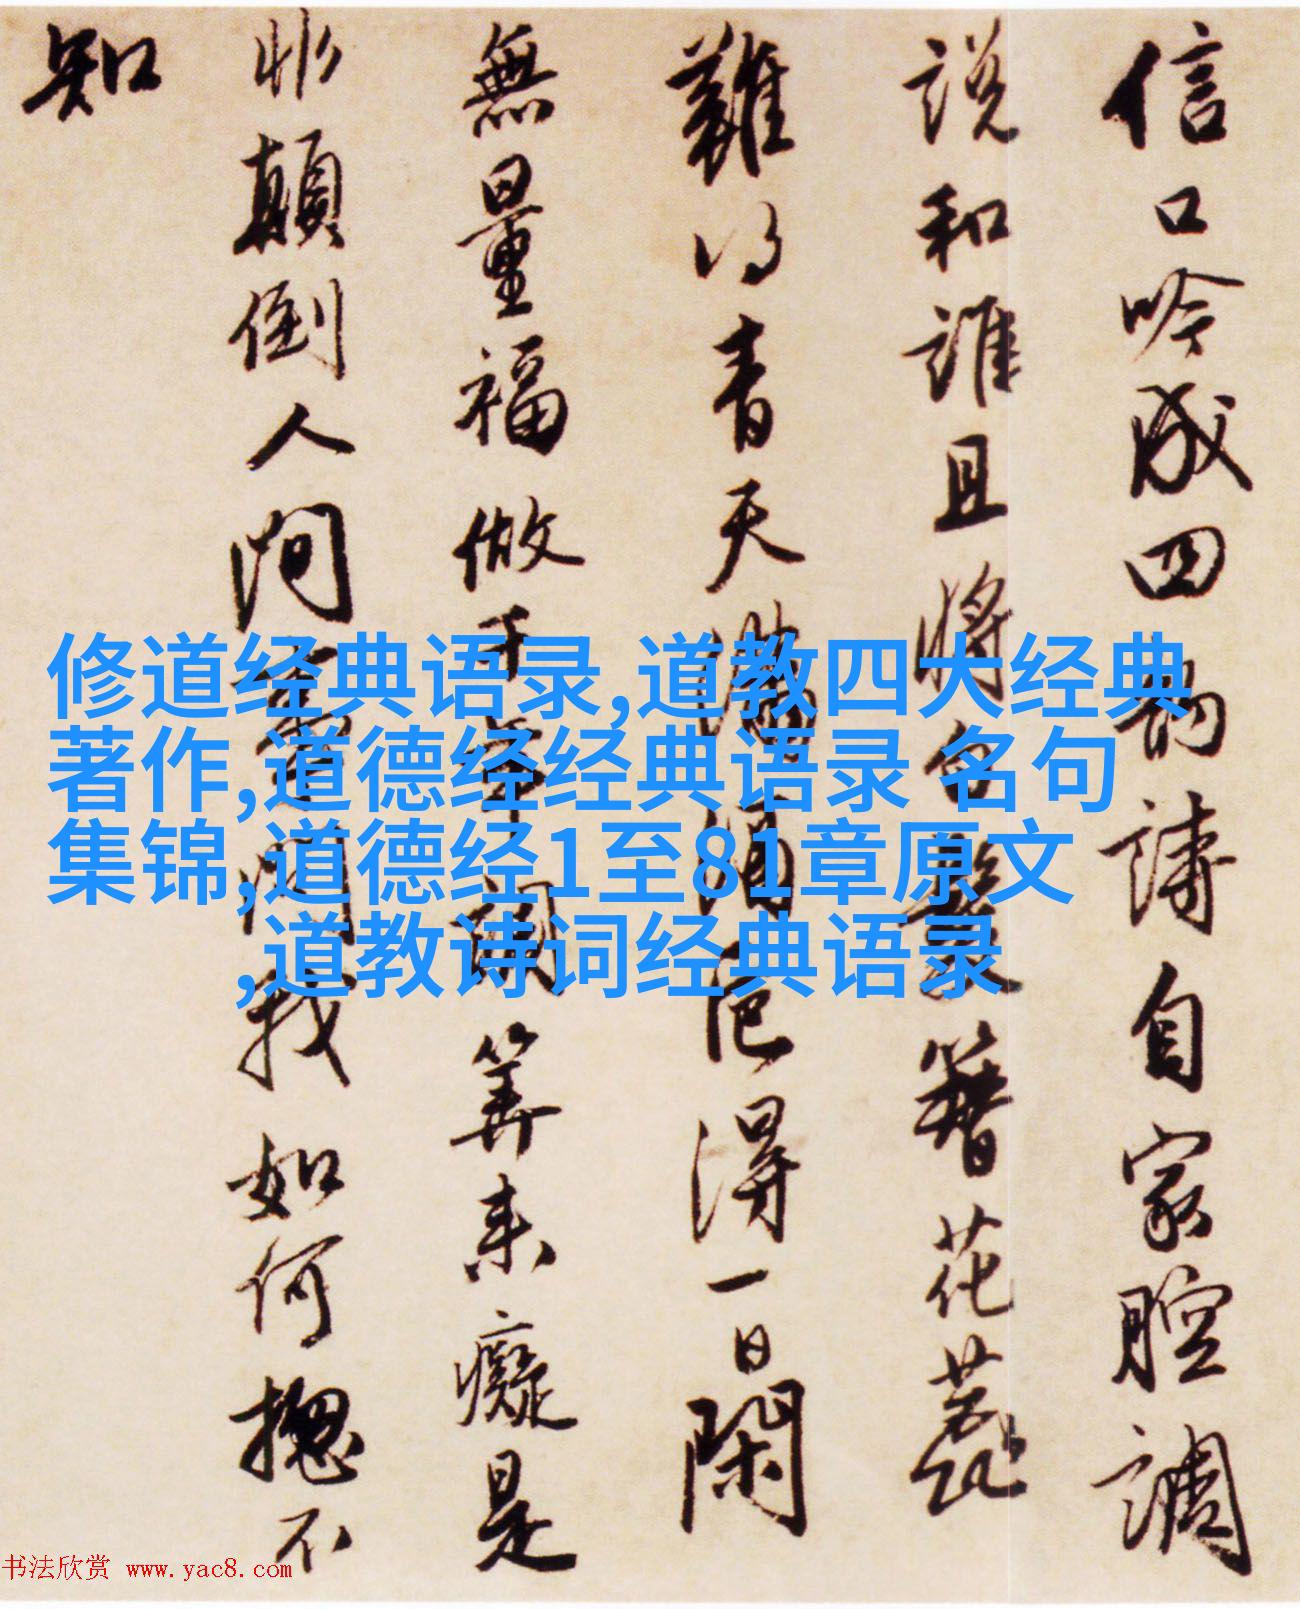 信口吟成四韵詩自家腔調
説和誰且將白髮簪花蕊
難得青天滿酒卮得一日閑
無量福做千年調算来癡是
非顛倒人間事問我如何揔不
知
修道经典语录,道教四大经典
著作,道德经经典语录 名句
集锦,道德经1至81章原文
,道教诗词经典语录
书法欣赏 www.yac8.com